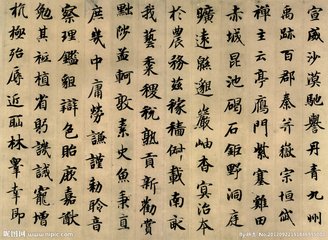 宣威沙漠馳譽丹青九州
禹跡百郡秦并嶽宗恒岱
禪主云亭鴈門紫塞雞田
赤城昆池碣石鉅野洞庭
曠遠緜邈巖岫杳冥治本
於農務茲稼穡俶載南畝
我藝黍稷稅熟貢新勸賞
黜陟孟軻敦素史魚秉直
庶幾中庸勞謙謹勑聆音
察理鑑貌辯色貽厥嘉猷
勉其祗植省躬譏誡寵增
抗極殆辱近恥林皐幸即
昵图网 www.nipic.com